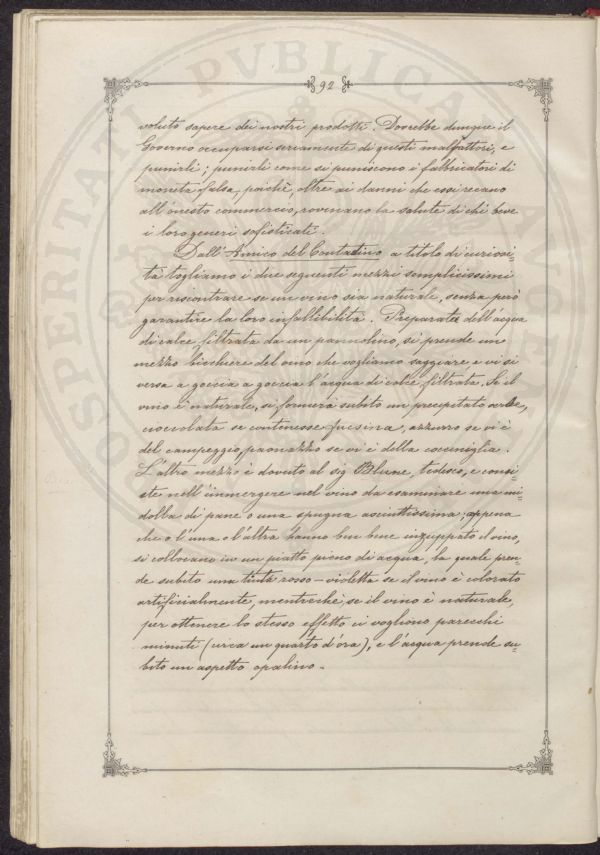 92
voluto sapere dei nostri prodotti. Dovrebbe dunque il
Governo occuparsi seriamente di questi malfattori, e
punirli; punirli come si puniscono i fabbricatori di
moneta falsa, poichè, oltre ai danni che essi recano
all'onesto commercio, rovinano la salute di chi beve
i loro generi sofisticati.
Dall'Amico del Contadino a titolo di curiosi=
tà togliamo i due seguenti mezzi semplicissimi
per riscontrare se un vino sia naturale, senza però
garantire la loro infallibilità. Preparate dell'acqua
di calce, filtrata da un pannolino, si prende un
mezzo bicchiere del vino che vogliamo saggiare e vi si
versa a goccia a goccia l'acqua di calce filtrata. Se il
vino è naturale, si formerà subito un precipitato verde,
cioccolata se contenesse fucsina, azzurro se vi è
del campeggio, paonazzo se vi è della cocciniglia.
L'altro mezzo è dovuto al sig Blume, tedesco, e consi=
ste nell'immergere nel vino da esaminare una mi=
dolla di pane o una spugna asciuttissima; appena
che o l'una o l'altra hanno ben bene inzuppato il vino,
si collocano in un piatto pieno di acqua, la quale pren=
de subito una tinta rosso-violetta se il vino è colorato
artificialmente, mentrechè, se il vino è naturale,
per ottenere lo stesso effetto ci vogliono parecchi
minuti (circa un quarto d'ora), e l'acqua prende su=
bito un aspetto opalino.